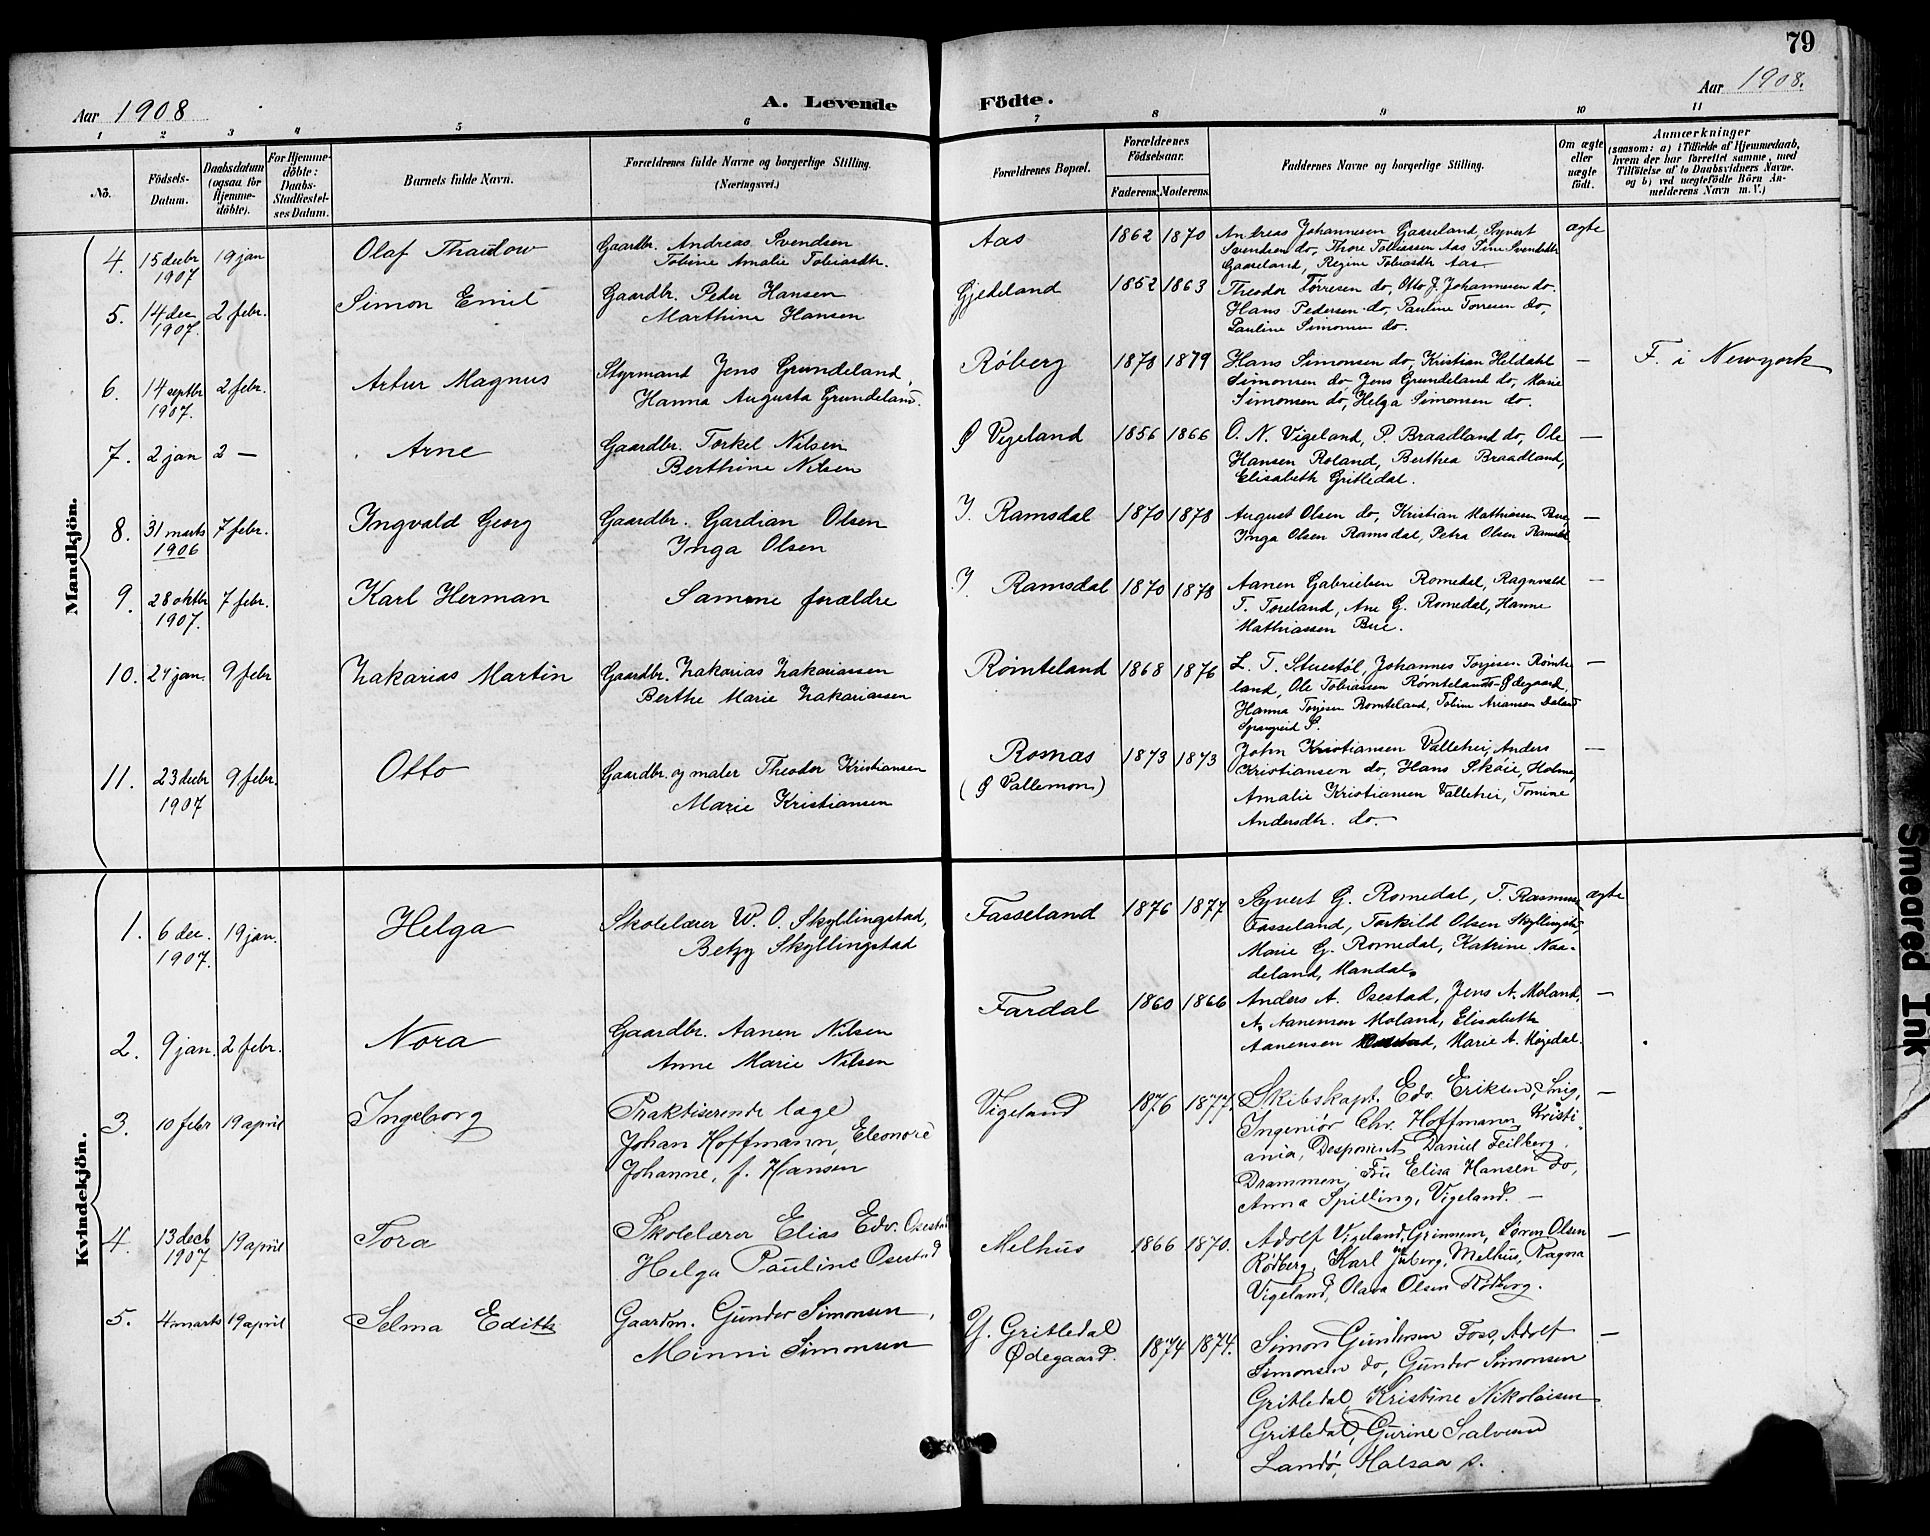 79
Aar 1908
A. Levende Födte.
Aar 1908.
1 2 3 4 5 6 7 8 9 10 11
No.
Födsels-Datum.
Daabsdatum (ogsaa for Hjemme-döbte).
For Hjemme-döbte: Daabs-Stadfæstel-ses Datum.
Barnets fulde Navn.
Forældrenes fulde Navne og borgerlige Stilling. (Næringsvei.)
Forældrenes Bopæl.
Forældrenes Födselsaar.
Faderens. Moderens.
Faddernes Navne og borgerlige Stilling.
Om ægte eller uægte födt.
Anmærkninger
(saasom: a) i Tilfælde af Hjemmedaab, hvem der har forrettet samme, med Tilföielse af to Daabsvidners Navne. og b) ved uægtefödte Börn An-melderens Navn m. V.)
Mandkjön.
4. 15 decbr 1907 19 jan Olaf Thaulow Gaardbr. Andreas Svendsen
Tobine Amalie Tobiasdtr. Aas 1862 1870 Andreas Johannesen Gaaseland, Syvert
Svendsen do, Thore Tobiassen Aas, Sine Svendsdtr
Gaaseland, Regine Tobiasdtr Aas. ægte
5. 14 dec 1907. 2 febr. Simon Emil Gaardbr. Peder Hansen
Marthine Hansen Gjedeland 1852 1863 Theodor Tørresen do, Otto J. Johannesen do.
Hans Pedersen do, Pauline Torresen do,
Pauline Simonsen do.
6. 14 septbr 1907. 2 febr. Artur Magnus Styrmand Jens Grundeland,
Hanna Augusta Grundeland. Røberg 1878 1879 Hans Simonsen do, Kristian Heldahl
Simonsen do, Jens Grundeland do, Marie
Simonsen do, Helga Simonsen do. — F. i Newyork
7. 2 jan 2 — Arne Gaardbr. Torkel Nilsen
Berthine Nilsen Ø Vigeland 1856 1866 O. N. Vigeland, P. Braadland do, Ole
Hansen Roland, Berthea Braadland,
Elisabeth Gritledal. —
8. 31 marts 1906 7 febr. Ingvald Georg Gaardbr. Gardian Olsen
Inga Olsen I. Ramsdal 1870 1878 August Olsen do, Kristian Mathiassen Bue,
Inga Olsen Ramsdal, Petra Olsen Ramsdal —
9. 28 oktbr 1907. 7 febr. Karl Herman Samme forældre I. Ramsdal 1870 1878 Aanen Gabrielsen Romedal, Ragnvald
T. Foreland, Ane G. Romedal, Hanne
Mathiassen Bue. —
10. 24 jan. 9 febr Zakarias Martin Gaardbr. Zakarias Zakariassen
Berthe Marie Zakariassen Rømteland 1868 1876 L. T. Stuestøl, Johannes Torjesen Rømte-
land, Ole Tobiassen Rømtelands-Ødegaard,
Hanna Torjesen Romteland, Tobine Ariansen Daland
Spangreid S. —
11. 23 decbr 1907 9 febr. Otto Gaardbr. og maler Theodor Kristiansen
Marie Kristiansen Romas
(Ø Vallemon) 1873 1873 John Kristiansen Valletiei, Anders
Kristiansen do, Hans Skøie, Holme,
Amalie Kristiansen Valletiei, Tomine
Andersdtr. do. —
Kvindekjön.
1. 6 dec. 1907. 19 jan. Helga Skolelærer W. O. Skyllingstad,
Betzy Skyllingstad Fasseland 1876 1877 Syvert G. Romedal, T. Rasmussen
Fasseland, Torkild Olsen Skyllingstad,
Marie G. Romedal, Katrine Naa-
deland, Mandal. ægte
2. 9 jan. 2 febr. Nora Gaardbr. Aanen Nilsen
Anne Marie Nilsen Fardal 1860 1866 Anders A. Osestad, Jens A. Moland,
A. Aanensen Moland, Elisabeth
Aanensen, Marie A. Højedal. —
3. 10 febr 19 april Ingeborg Praktiserende læge
Johan Hoffmann, Eleonore
Johanne, f. Hansen Vigeland 1876 1877. Skibskapt. Edv. Eriksen, Snig,
Ingeniør Chr. Hoffmann, Kristi-
ania, Desponent Daniel Feilberg,
Drammen, Fru Elisa Hansen do,
Anna Spilling, Vigeland. —
4. 13 decb 1907 19 april Tora Skolelærer Elias Edv. Osestad
Helga Pauline Osestad Melhus 1866 1870. Adolf Vigeland, Grinnem, Søren Olsen
Rødberg, Karl Juberg, Melhus, Ragna
Vigeland, Olava Olsen Rødberg. —
5. 4 marts 19 april Selma Edith Gaardm. Gunder Simonsen,
Minni Simonsen Y. Gritledal
Ødegaard. 1874 1874. Simon Gundersen Foss, Adolf
Simonsen do, Gunder Simonsen
Gritledal, Kristine Nikolaisen
Gritledal, Gurine Salvesen
Landø, Halsaa s. —
Smeared Ink